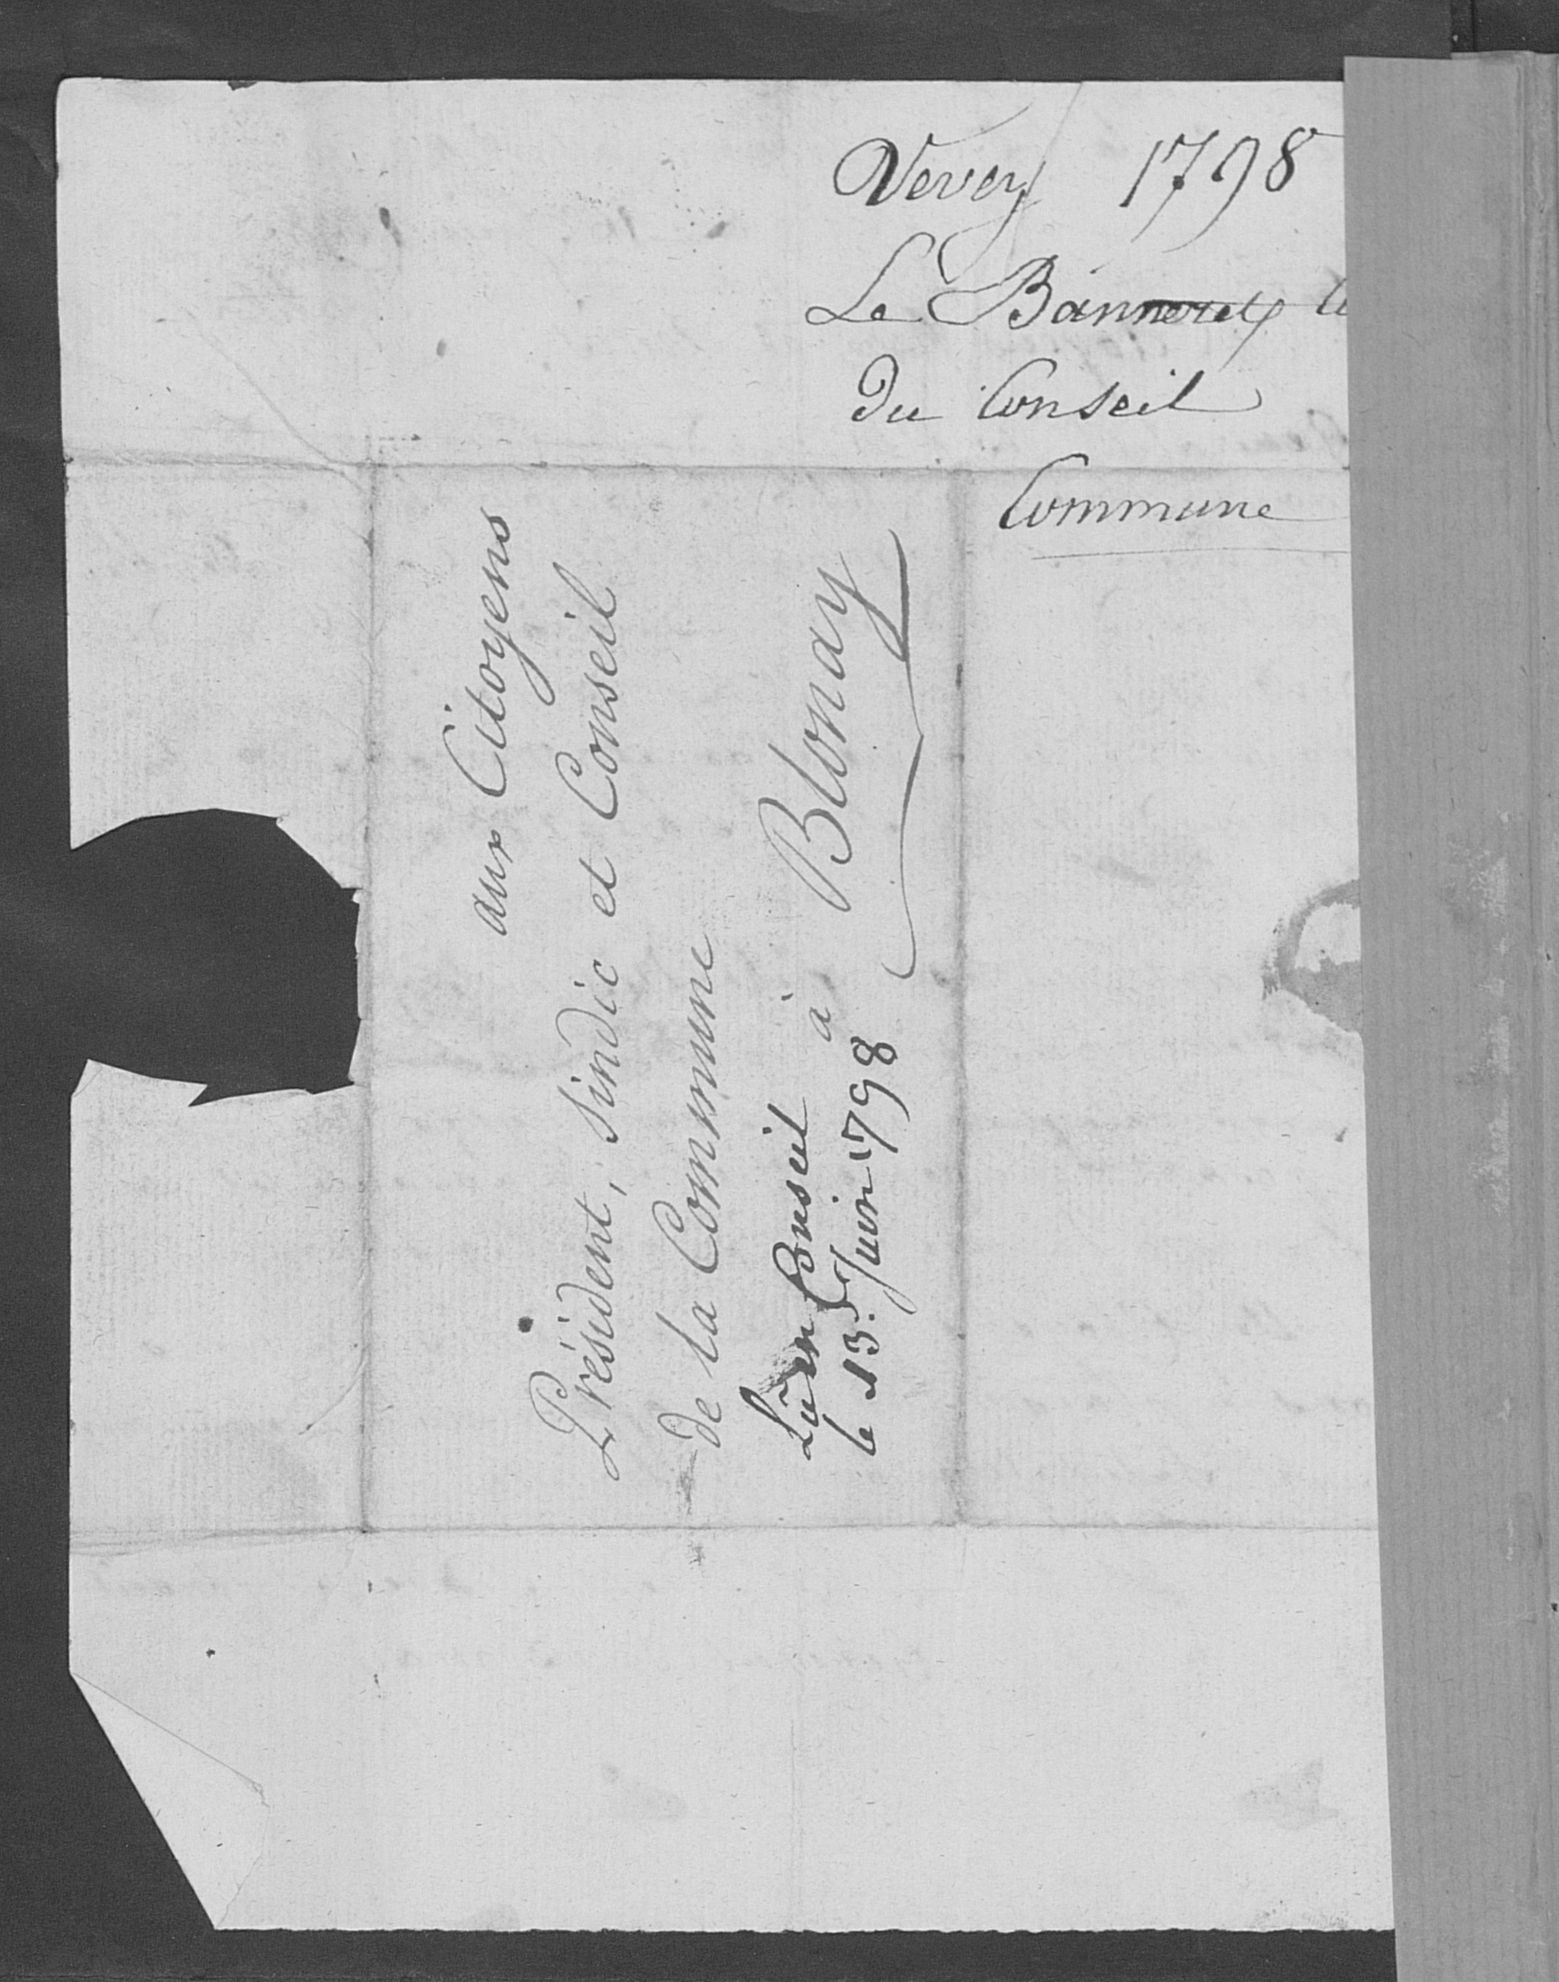 Vevey 1798
Le Banneret
du Conseil
Commune
aux Citoyens
Président, Sindic et Conseil
de la Commune
à Blonay
Lu en Conseil
le 13. Juin 1798